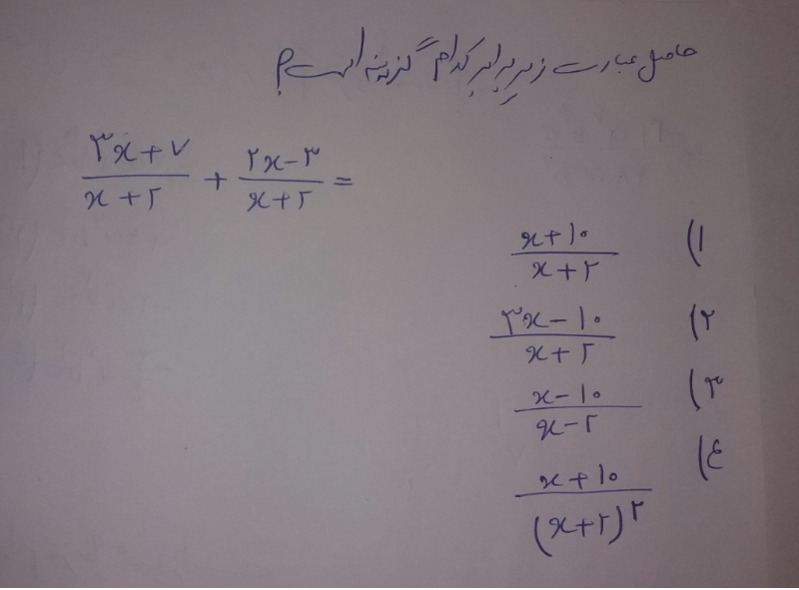 حاصل عبارت زیر برابر کدام گزینه است؟
(۳x+۷)/(x+۲) + (۲x-۳)/(x+۲) =
۱) (x+۱۰)/(x+۲)
۲) (۳x-۱۰)/(x+۲)
۳) (x-۱۰)/(x-۲)
۴) (x+۱۰)/(x+۲)^۲